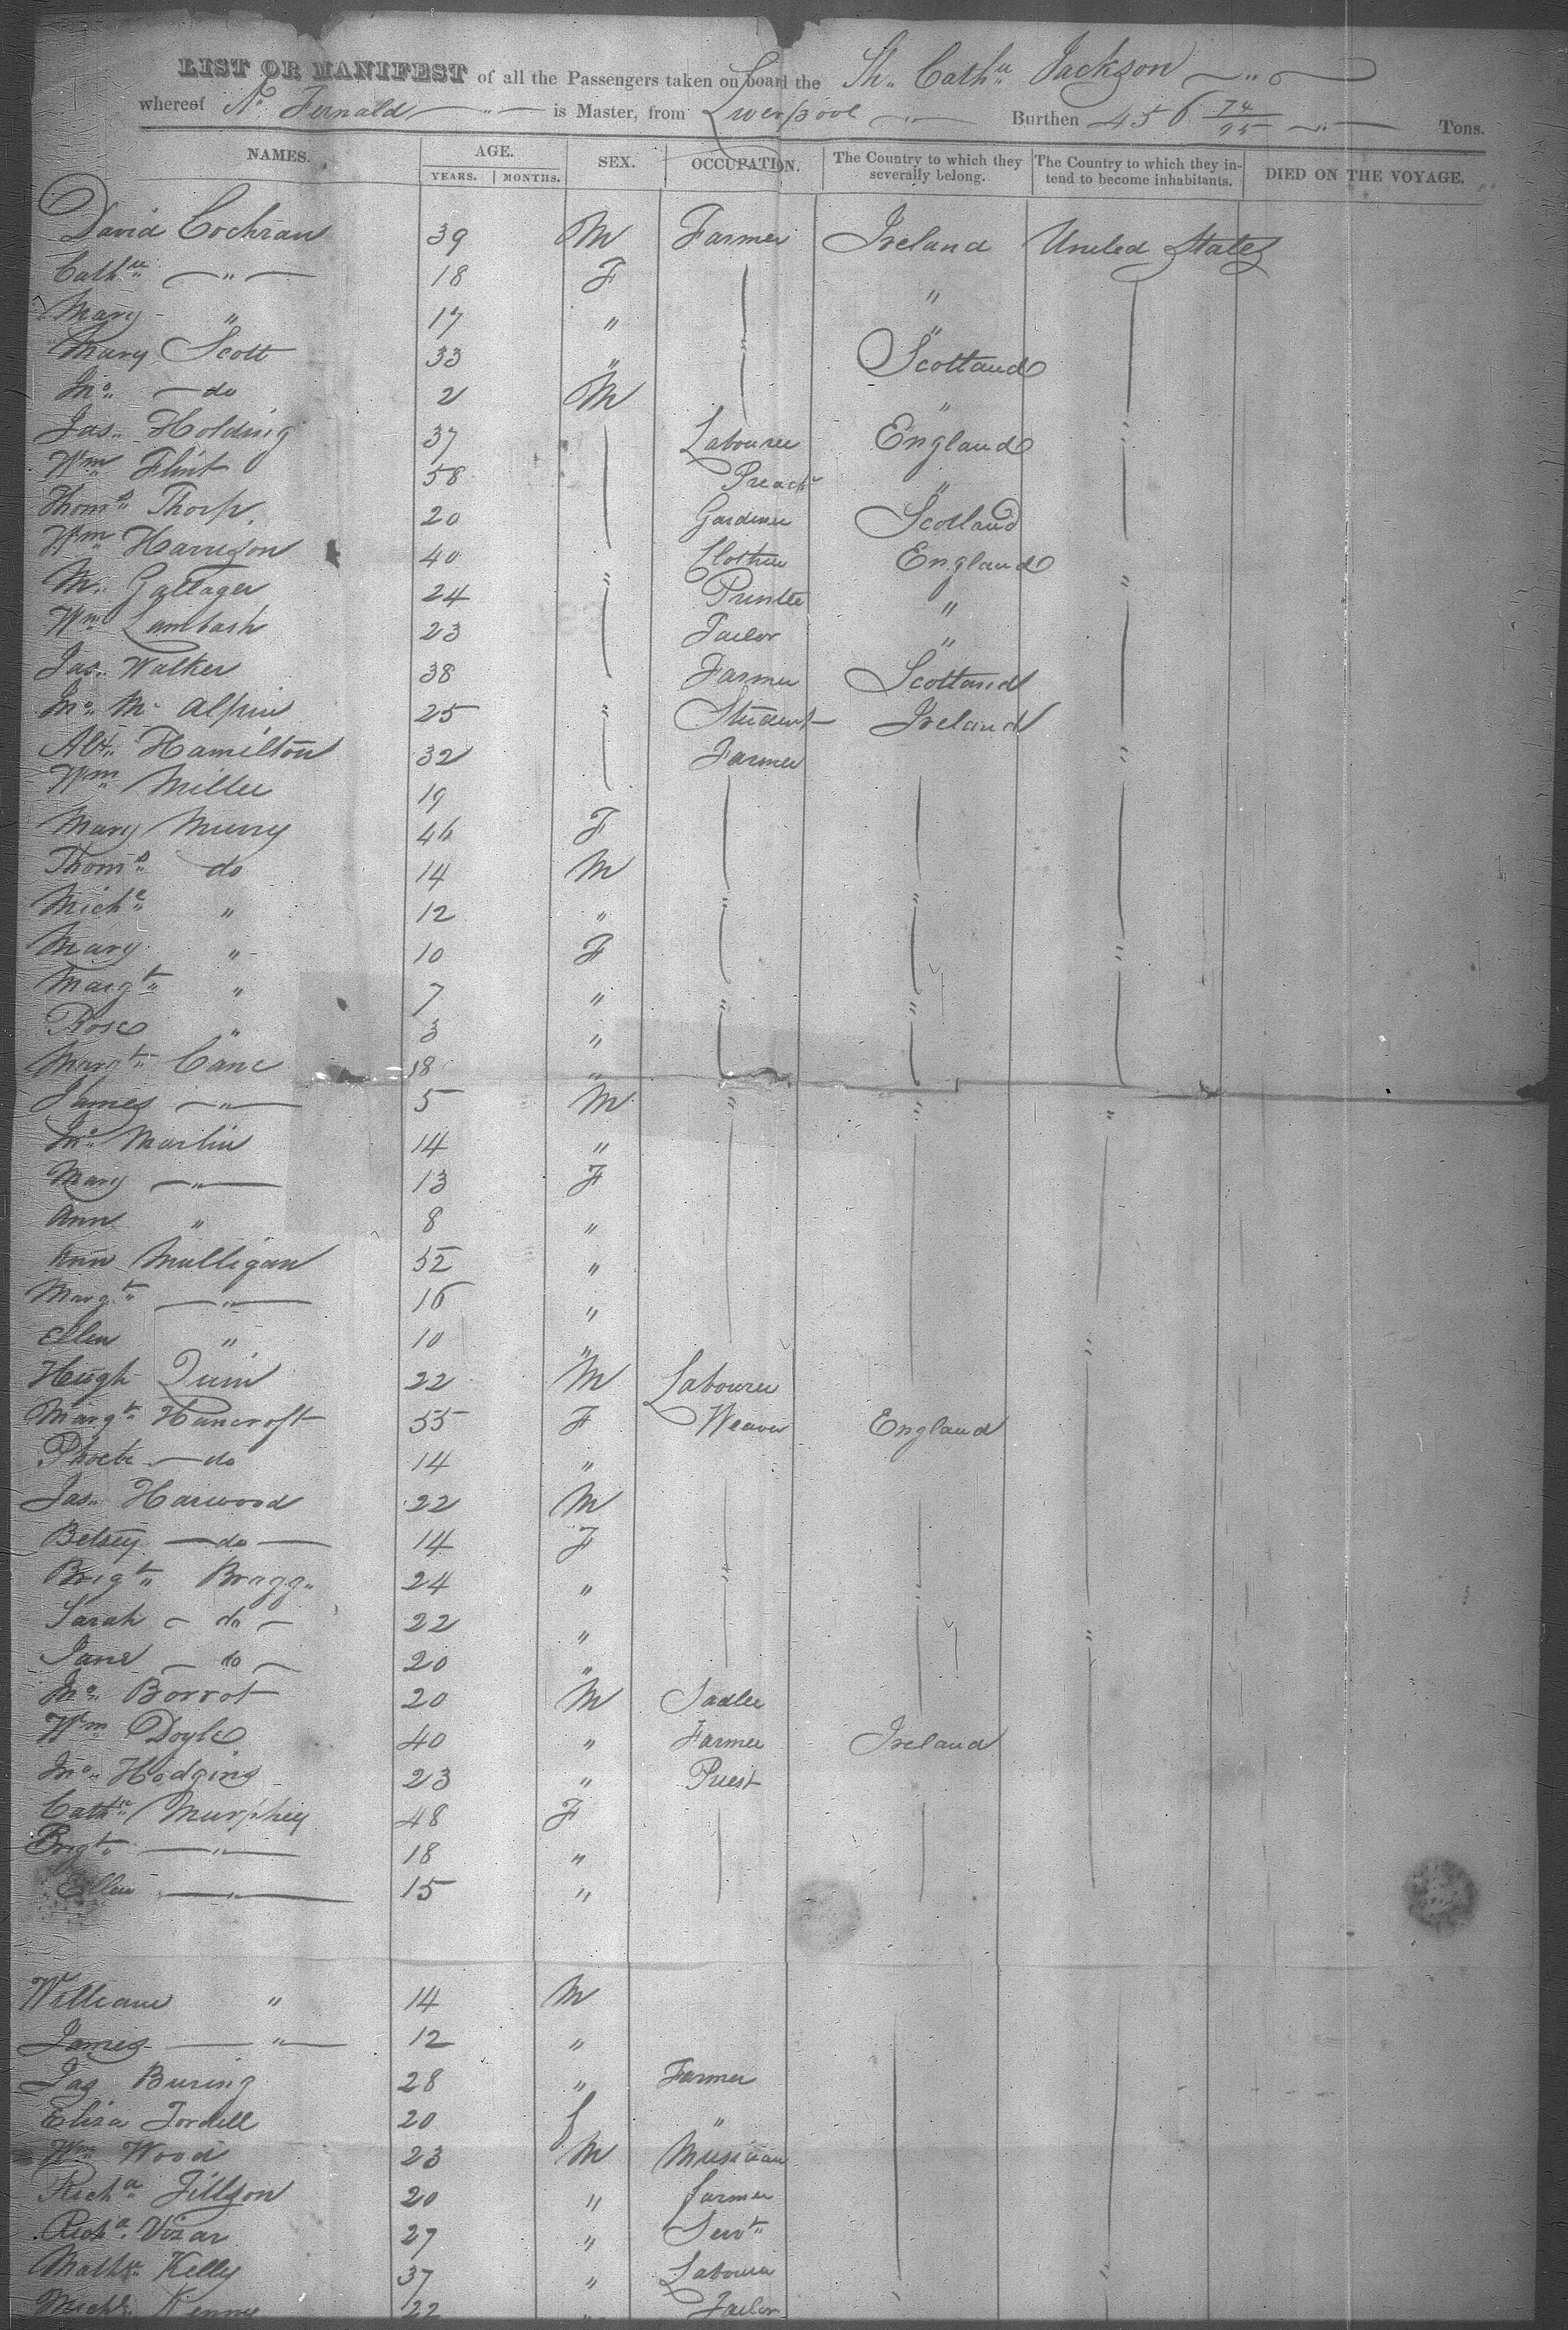 LIST OR MANIFEST of all the Passengers taken on board the Sh. Catha Jackson
whereof N. Fernald is Master, from Liverpool Burthen 456 74/95 Tons.
NAMES. AGE. YEARS. MONTHS. SEX. OCCUPATION. The Country to which they severally belong. The Country to which they intend to become inhabitants. DIED ON THE VOYAGE.
David Cochran 39 M Farmer Ireland United States
Catha " 18 F "
Mary " 17 " "
Mary Scott 33 " Scotland
Jno do 2 M "
Jas. Holding 37 Labourer England
Wm Flint 58 Preachr "
Thoms Thorp 20 Gardiner Scotland
Wm Harrison 40 " Clothier England
M. Gallager 24 Printer "
Wm Lambash 23 Tailor "
Jas. Walker 38 Farmer Scotland
Jno Mc Alpin 25 " Student Ireland
Alx. Hamilton 32 Farmer
Wm Miller 19
Mary Murry 46 F
Thoms do 14 M
Miche " 12 "
Mary " 10 F
Margt " 7 "
Rose " 3 "
Margt Cane 18 "
James " 5 M
Jno Martin 14 "
Mary " 13 F
Ann " 8 "
Ann Mulligan 52 "
Margt " 16 "
Ellen " 10 "
Hugh Quin 22 M Labourer
Margt Hancroft 55 F Weaver England
Phoebe do 14 "
Jas. Harwood 22 M
Betsey do 14 F
Brigt Bragg 24 "
Sarah do 22 "
Jane do 20 "
Jno Borrot 20 M Sadler
Wm Doyle 40 " Farmer Ireland
Jno Hodgins 23 " Priest
Catha Murphey 48 F
Brigt " 18 "
Ellen " 15 "
William " 14 M
James " 12 "
Jas Buring 28 " Farmer
Eliza Tordell 20 f "
Wm Wood 23 M Musician
Richd Jillson 20 " farmer
Richd Vizar 27 " Servt
Mathw Kelly 37 " Labourer
Michl Kenny 22 " Tailor